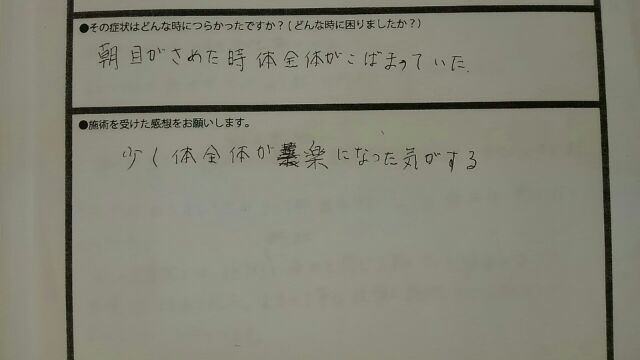 ●その症状はどんな時につらかったですか？(どんな時に困りましたか？)
朝目がさめた時体全体がこばまっていた.
●施術を受けた感想をお願いします。
少く体全体が楽になった気がする